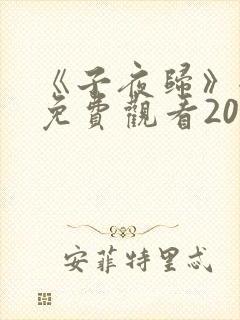 《子夜歸》
免費觀看20
安菲特里忒